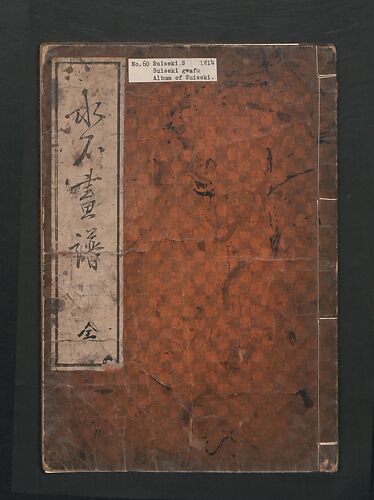 No.60 Suiseki.S 1814
Suiseki gwafu
Album of Suiseki.
水石畫譜
全